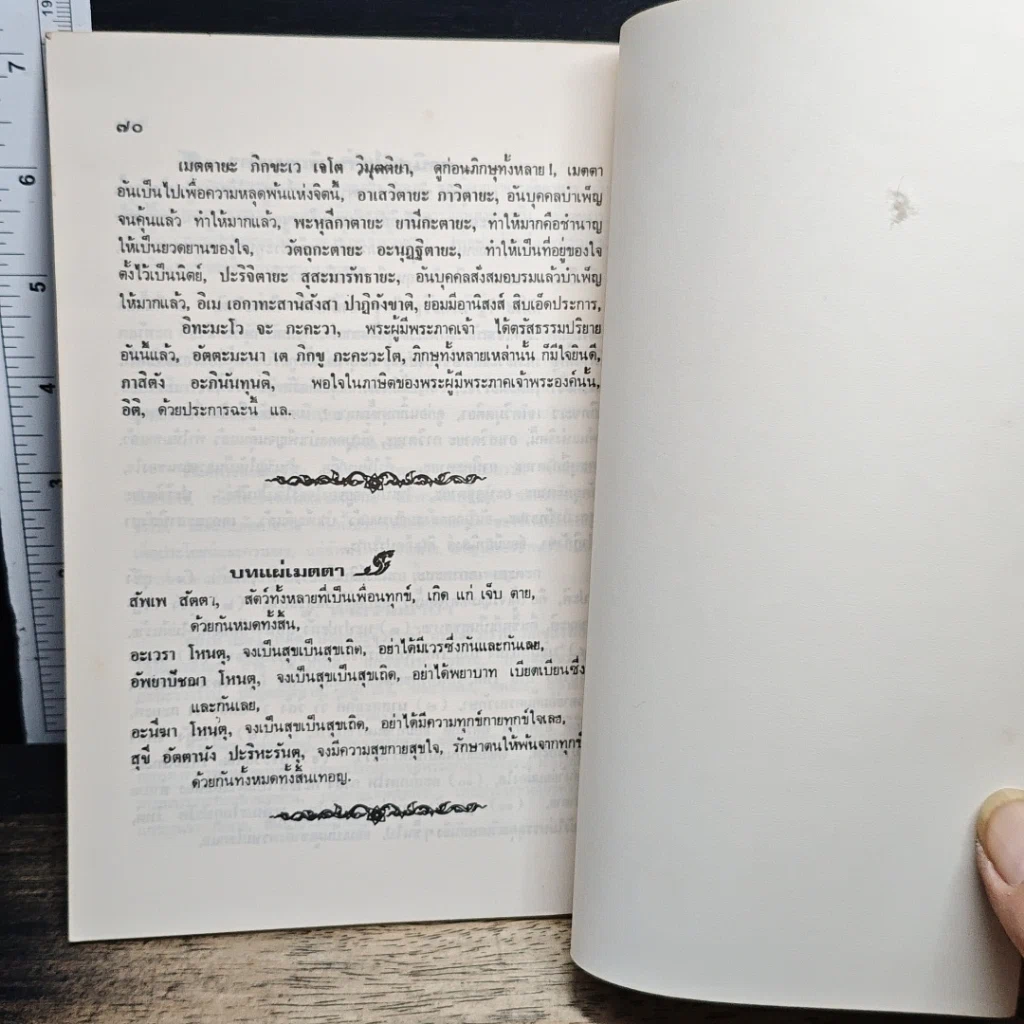 ๗๐
เมตตายะ ภิกขะเว เจโต วิมุตติยา, ดูก่อนภิกษุทั้งหลาย!, เมตตา
อันเป็นไปเพื่อความหลุดพ้นแห่งจิตนี้, อาเสวิตายะ ภาวิตายะ, อันบุคคลบำเพ็ญ
จนคุ้นแล้ว ทำให้มากแล้ว, พะหุลีกาตายะ ยานีกะตายะ, ทำให้มากคือชำนาญ
ให้เป็นยวดยานของใจ, วัตถุกะตายะ อะนุฏฐิตายะ, ทำให้เป็นที่อยู่ของใจ
ตั้งไว้เป็นนิตย์, ปะริจิตายะ สุสะมารัทธายะ, อันบุคคลสั่งสมอบรมแล้วบำเพ็ญ
ให้มากแล้ว, อิเม เอกาทะสานิสังสา ปาฏิกังขาติ, ย่อมมีอานิสงส์ สิบเอ็ดประการ,
อิทะมะโว จะ ภะคะวา, พระผู้มีพระภาคเจ้า ได้ตรัสธรรมปริยาย
อันนี้แล้ว, อัตตะมะนา เต ภิกขู ภะคะวะโต, ภิกษุทั้งหลายเหล่านั้น ก็มีใจยินดี,
ภาสิตัง อะภินันทุนติ, พอใจในภาษิตของพระผู้มีพระภาคเจ้าพระองค์นั้น,
อิติ, ด้วยประการฉะนี้ แล.
บทแผ่เมตตา
สัพเพ สัตตา, สัตว์ทั้งหลายที่เป็นเพื่อนทุกข์, เกิด แก่ เจ็บ ตาย,
ด้วยกันหมดทั้งสิ้น,
อะเวรา โหนตุ, จงเป็นสุขเป็นสุขเถิด, อย่าได้มีเวรซึ่งกันและกันเลย,
อัพยาปัชฌา โหนตุ, จงเป็นสุขเป็นสุขเถิด, อย่าได้พยาบาท เบียดเบียนซึ่ง
และกันเลย,
อะนีฆา โหนตุ, จงเป็นสุขเป็นสุขเถิด, อย่าได้มีความทุกข์กายทุกข์ใจเลย,
สุขี อัตตานัง ปะริหะรันตุ, จงมีความสุขกายสุขใจ, รักษาตนให้พ้นจากทุกข์
ด้วยกันทั้งหมดทั้งสิ้นเทอญ.
3
4
5
6
7